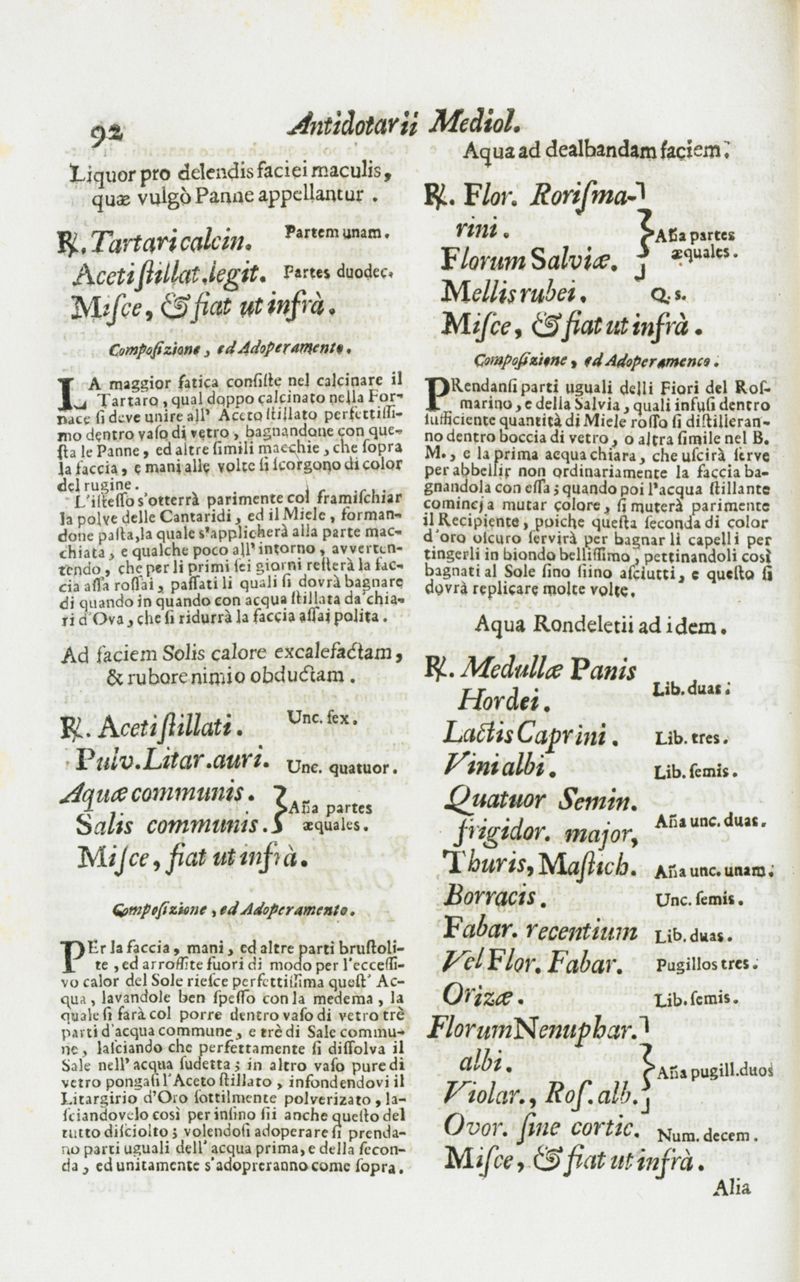 92
Antidotarii Mediol.
Liquor pro delendis faciei maculis,
quæ vulgò Panne appellantur .
℞. Tartari calcin. Partem unam.
Aceti ſtillat.legit. Partes duodec.
Miſce, & fiat ut infrà.
Compoſizione, ed Adoperamento.
LA maggior fatica conſiſte nel calcinare il
Tartaro, qual doppo calcinato nella For-
nace ſi deve unire all' Aceto ſtillato perfettiſſi-
mo dentro vaſo di vetro, bagnandone con que-
ſta le Panne, ed altre ſimili macchie, che ſopra
la faccia, e mani alle volte ſi ſcorgono di color
del rugine.
L'iſteſſo s'otterrà parimente col framiſchiar
la polve delle Cantaridi, ed il Miele, forman-
done paſta,la quale s'applicherà alla parte mac-
chiata, e qualche poco all' intorno, avverten-
tendo, che per li primi ſei giorni reſterà la fac-
cia aſſa roſſai, paſſati li quali ſi dovrà bagnare
di quando in quando con acqua ſtillata da' chia-
ri d'Ova, che ſi ridurrà la faccia aſſai polita.
Ad faciem Solis calore excalefactam,
& rubore nimio obductam.
℞. Aceti ſtillati. Unc. ſex.
Pulv.Litar.auri. Unc. quatuor.
Aquæ communis. } Aña partes
Salis communis. } æquales.
Miſce, fiat ut infrà.
Compoſizione, ed Adoperamento.
PEr la faccia, mani, ed altre parti bruſtoli-
te, ed arroſſite fuori di modo per l'ecceſſi-
vo calor del Sole rieſce perfettiſſima queſt' Ac-
qua, lavandole ben ſpeſſo con la medema, la
quale ſi farà col porre dentro vaſo di vetro trè
parti d'acqua commune, e trè di Sale commu-
ne, laſciando che perfettamente ſi diſſolva il
Sale nell' acqua ſudetta; in altro vaſo pure di
vetro pongaſi l'Aceto ſtillato, infondendovi il
Litargirio d'Oro ſottilmente polverizato, la-
ſciandovelo così per inſino ſii anche queſto del
tutto diſciolto; volendoſi adoperare ſi prenda-
no parti uguali dell' acqua prima, e della ſecon-
da, ed unitamente s'adopreranno come ſopra.
Aqua ad dealbandam faciem.
℞. Flor. Roriſma- }
rini. } Aña partes
Florum Salviæ. } æquales.
Mellis rubei. Q. s.
Miſce, & fiat ut infrà.
Compoſizione, ed Adoperamenco.
PRendanſi parti uguali delli Fiori del Roſ-
marino, e della Salvia, quali infuſi dentro
ſufficiente quantità di Miele roſſo ſi diſtilleran-
no dentro boccia di vetro, o altra ſimile nel B.
M., e la prima acqua chiara, che uſcirà ſerve
per abbellir non ordinariamente la faccia ba-
gnandola con eſſa; quando poi l'acqua ſtillante
comincja mutar colore, ſi muterà parimente
il Recipiente, poiche queſta ſeconda di color
d'oro oſcuro ſervirà per bagnar li capelli per
tingerli in biondo belliſſimo, pettinandoli così
bagnati al Sole ſino ſiino aſciutti, e queſto ſi
dovrà replicare molte volte.
Aqua Rondeletii ad idem.
℞. Medullæ Panis
Hordei. Lib. duas.
Lactis Caprini. Lib. tres.
Vini albi. Lib. ſemis.
Quatuor Semin.
frigidor. major, Aña unc. duas.
Thuris, Maſtich. Aña unc. unam.
Borracis. Unc. ſemis.
Fabar. recentium Lib. duas.
Vel Flor. Fabar. Pugillos tres.
Orizæ. Lib. ſemis.
Florum Nenuphar. }
albi. } Aña pugill.duos
Violar., Roſ. alb. }
Ovor. ſine cortic. Num. decem.
Miſce, & fiat ut infrà.
Alia